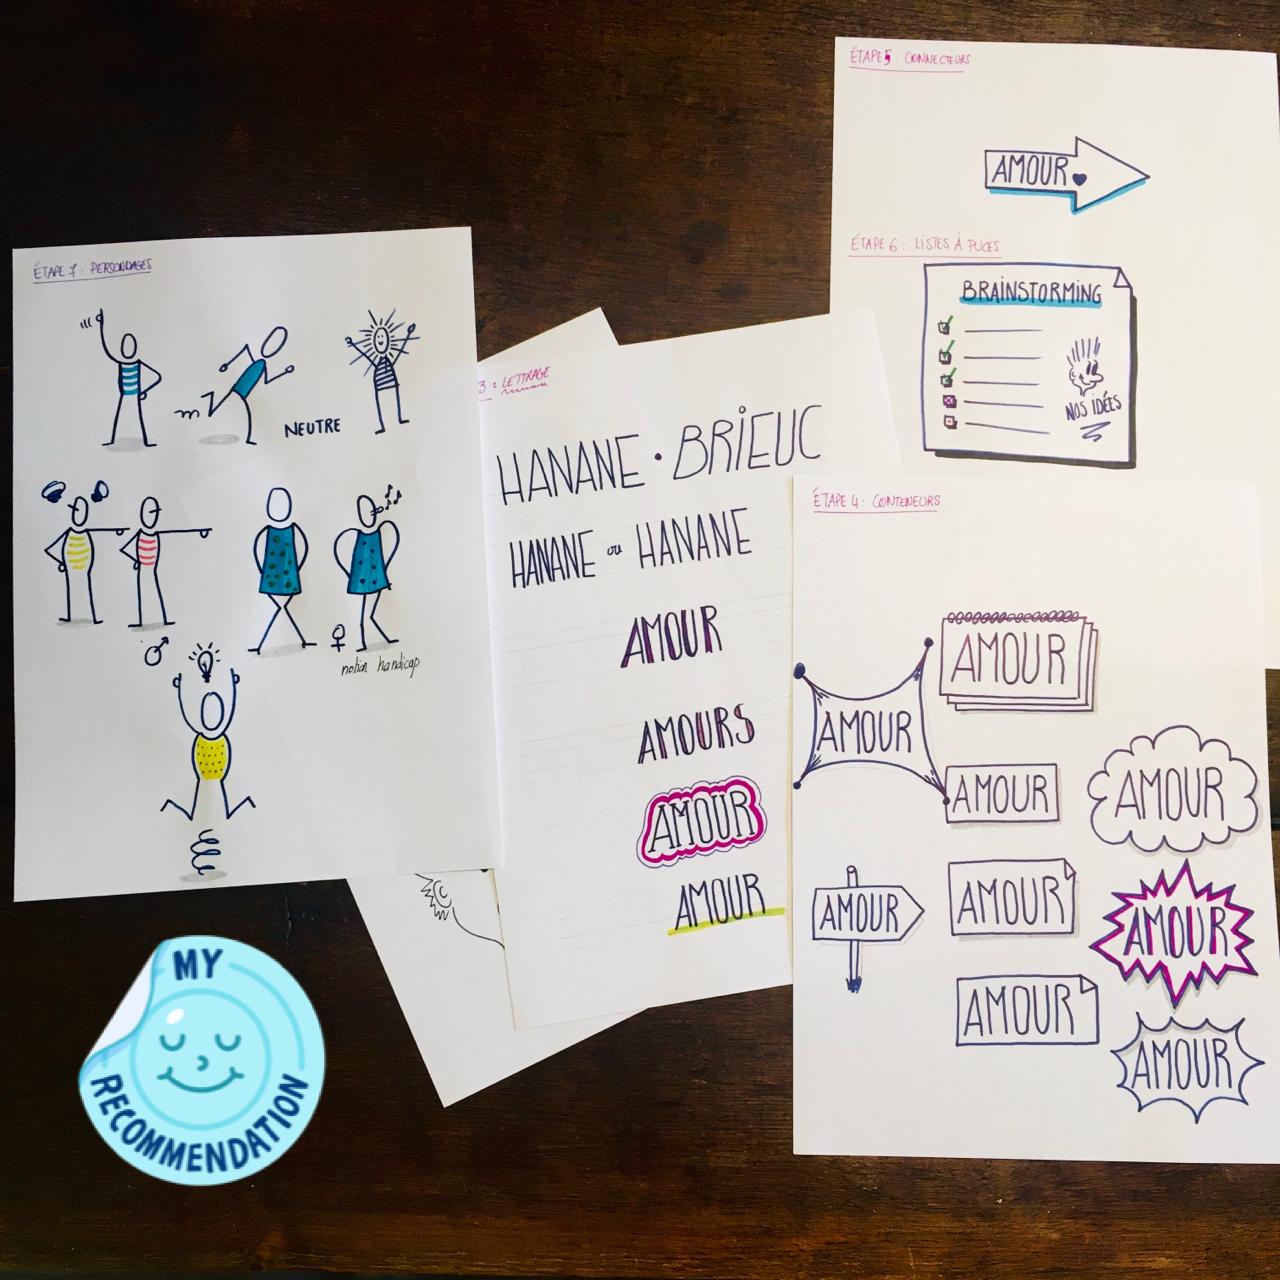 ÉTAPE 7 : PERSONNAGES
NEUTRE
notion handicap
3 : LETTRAGE
HANANE • BRIEUC
HANANE ou HANANE
AMOUR
AMOURS
AMOUR
AMOUR
ÉTAPE 5 : CONNECTEURS
AMOUR
ÉTAPE 6 : LISTES À PUCES
BRAINSTORMING
NOS IDÉES
ÉTAPE 4 : CONTENEURS
AMOUR
AMOUR
AMOUR
AMOUR
AMOUR
AMOUR
AMOUR
AMOUR
AMOUR
MY
RECOMMENDATION